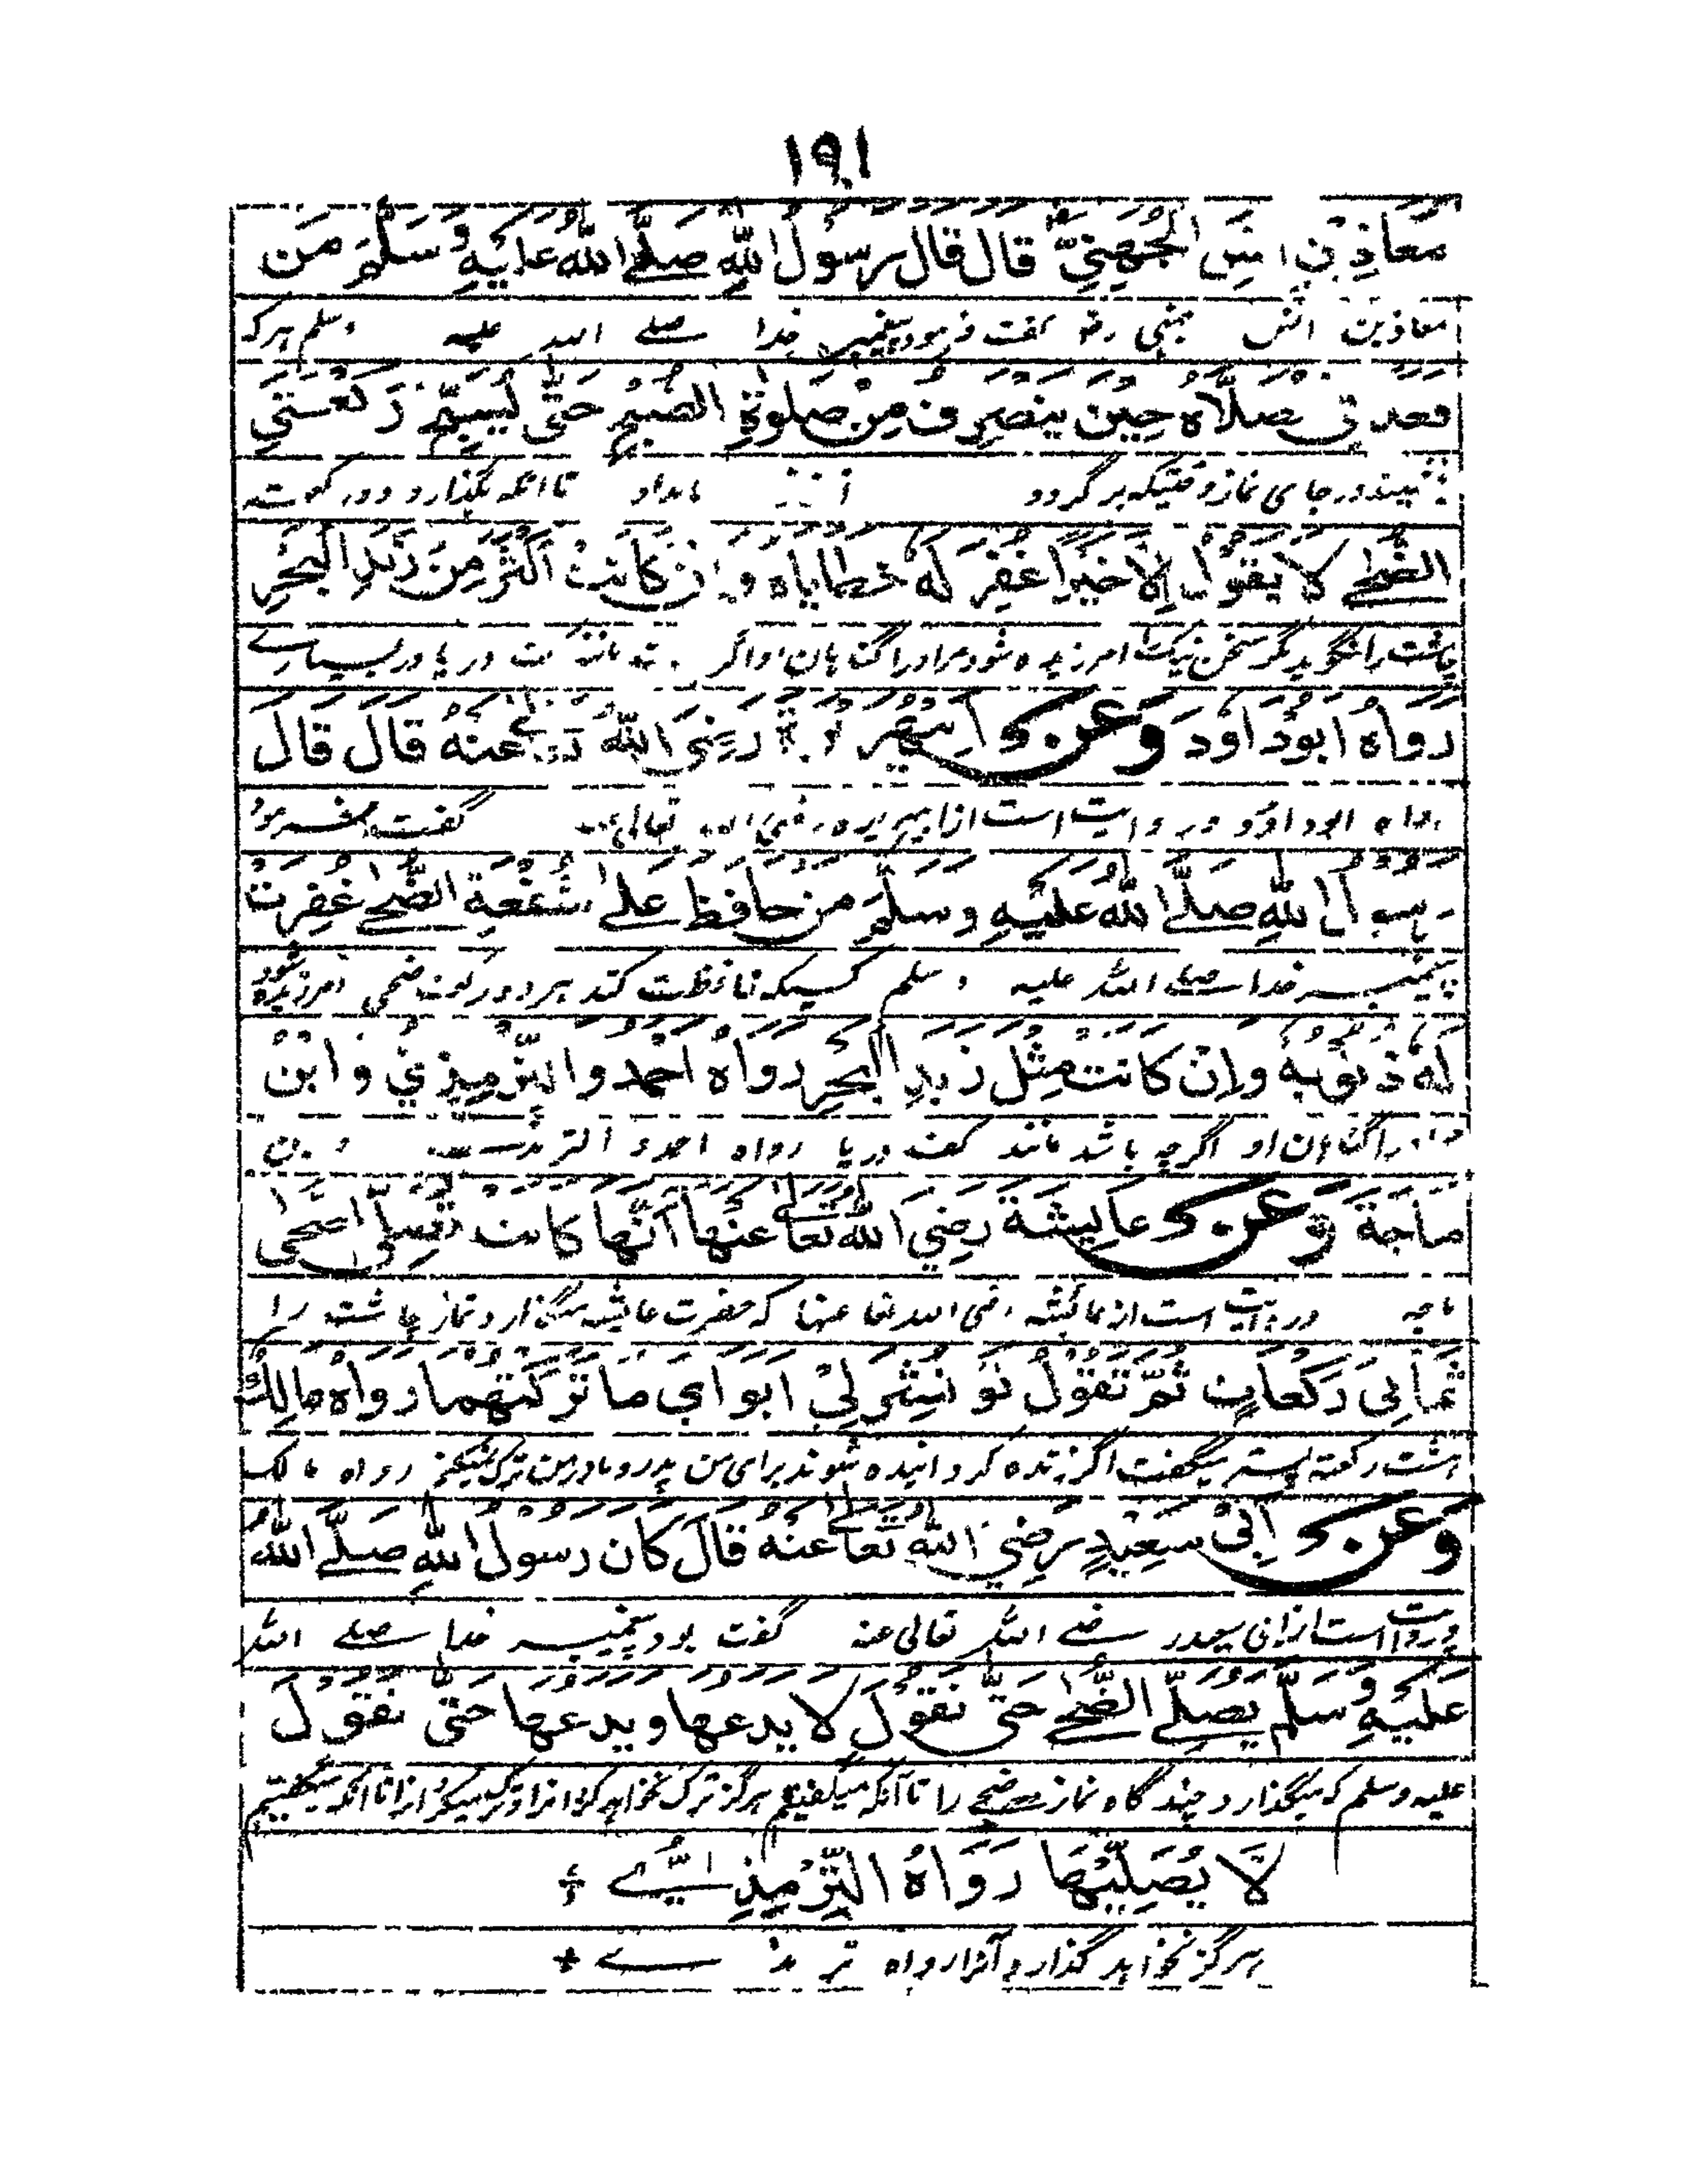 ١٩١
مُعَاذِ بْنِ اَنَسٍ الْجُهَنِيِّ قَالَ قَالَ رَسُوْلُ اللّٰهِ صَلَّے اللّٰهُ عَلَيْهِ وَسَلَّمَ مَنْ
معاذ بن انس جہنی رضہ گفت فرمود پیغمبر خدا صلے اللہ علیہ وسلم ہر کہ
قعد في مصلّاه حِيْنَ ينصرِف مِنْ صلوةِ الصبح حَتّٰى يُسبِّحَ رَكْعَتَيِ
در جای نماز وقتیکہ بر گردد از بامداد تا آنکہ بگذارد دو رکعت
الضُّحٰے لا يَقُوْلُ اِلَّا خَيْرًا غُفِرَ لَهُ خطاياه وَاِن كَانَتْ اَكْثَرَ مِنْ زَبَدِ الْبَحْرِ
چاشت را نگوید مگر سخن نیک امرزیدہ شود مر اورا گناہان او اگر دریا در بسیارے
رَوَاهُ اَبُوْ دَاوٗدَ وَعَنْ اَبِيْ هُرَيْرَةَ رَضِيَ اللّٰهُ عَنْهُ قَالَ قَالَ
رواہ ابو داوُد و روایت است از ابیہریرہ رضی اللہ تعالی گفت فرمود
رَسُوْلُ اللّٰهِ صَلَّے اللّٰهُ عَلَيْهِ وَسَلَّمَ مَنْ حَافَظَ عَلٰے شُفْعَةِ الضُّحٰے غُفِرَتْ
پیغمبر خدا صلے اللہ علیہ وسلم کسیکہ محافظت کند بر دو رکعت ضحی امرزیدہ شود
لَهُ ذُنُوْبُهٗ وَاِنْ كَانَتْ مِثْلَ زَبَدِ الْبَحْرِ رَوَاهُ اَحْمد وَالتِّرْمِذِيُّ وَابْنُ
را گناہان او اگرچہ باشد مانند کف دریا رواہ احمد و الترمذے و بن
مَاجَةَ وَعَنْ عَايِشَةَ رَضِيَ اللّٰهُ تَعَالٰے عَنْهَا اَنَّهَا كَانَتْ تُصَلِّي الضُّحٰى
ماجہ و روایت است از عائشہ رضی اللہ تعا عنہا کہ حضرت عایشہ میگذارد نماز چاشت را
ثَمَانِيَ رَكْعَاتٍ ثُمَّ تَقُوْلُ لَوْ نُشِرَ لِيْ اَبَوَاي مَا تَرَكْتُهما رَوَاهُ مَالِكٌ
ہشت رکعت پستر میگفت اگر زندہ گردانیدہ شوند برای من پدر و مادر من ترک نمیکنم رواہ مالک
وَعَنْ اَبِيْ سَعِيْدٍ رَضِيَ اللّٰهُ تَعَالٰے عَنْهُ قَالَ كَانَ رَسُوْلُ اللّٰهِ صَلَّے اللّٰهُ
و روایت است از ابی سعید رضے اللہ تعالی عنہ گفت بود پیغمبر خدا صلے اللہ
عَلَيْهِ وَسَلَّمَ يُصَلِّے الضُّحٰے حَتّٰى نَقُوْلَ لَا يدعها ويدعها حَتّٰى نَقُوْلَ
علیہ وسلم کہ میگذارد چند گاہ نماز ضحے را تا آنکہ میگفتیم ہرگز ترک نخواہد کرد انرا و ترک میکرد انرا تا آنکہ میگفتیم
لَا يُصَلِّيْهَا رَوَاهُ التِّرْمِذِيُّ
ہرگز نخواہد گذارد آنرا رواہ ترمذے